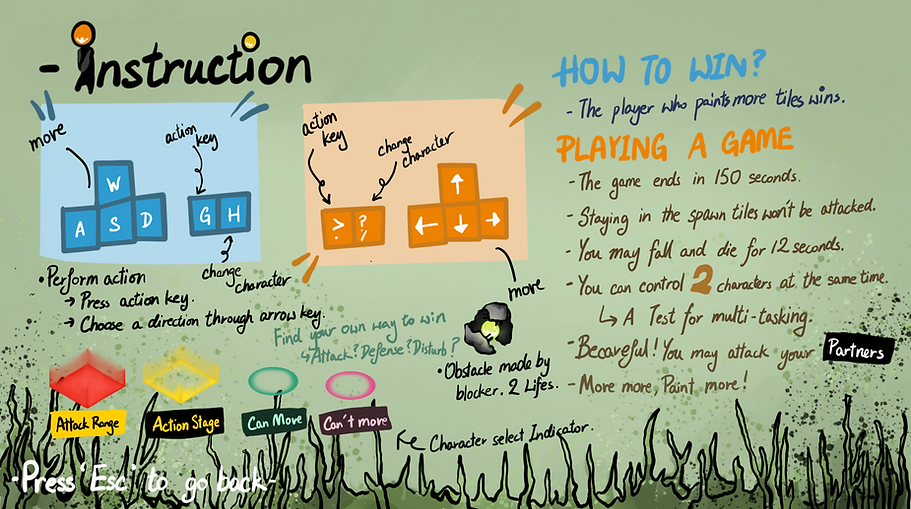 - Instruction
move
action key
W
A S D
G H
change character
• Perform action
→ Press action key.
→ Choose a direction through arrow key.
action key
change character
> .
? /
↑
← ↓ →
move
Find your own way to win
↳ Attack? Defense? Disturb?
• Obstacle made by
blocker. 2 Lifes.
Attack Range
Action Stage
Can Move
Can't move
Character select Indicator.
-Press 'Esc' to go back-
HOW TO WIN?
- The player who paints more tiles wins.
PLAYING A GAME
- The game ends in 150 seconds.
- Staying in the spawn tiles won't be attacked.
- You may fall and die for 12 seconds.
- You can control 2 characters at the same time.
↳ A Test for multi-tasking.
- Becareful! You may attack your Partners
- More more, Paint more!